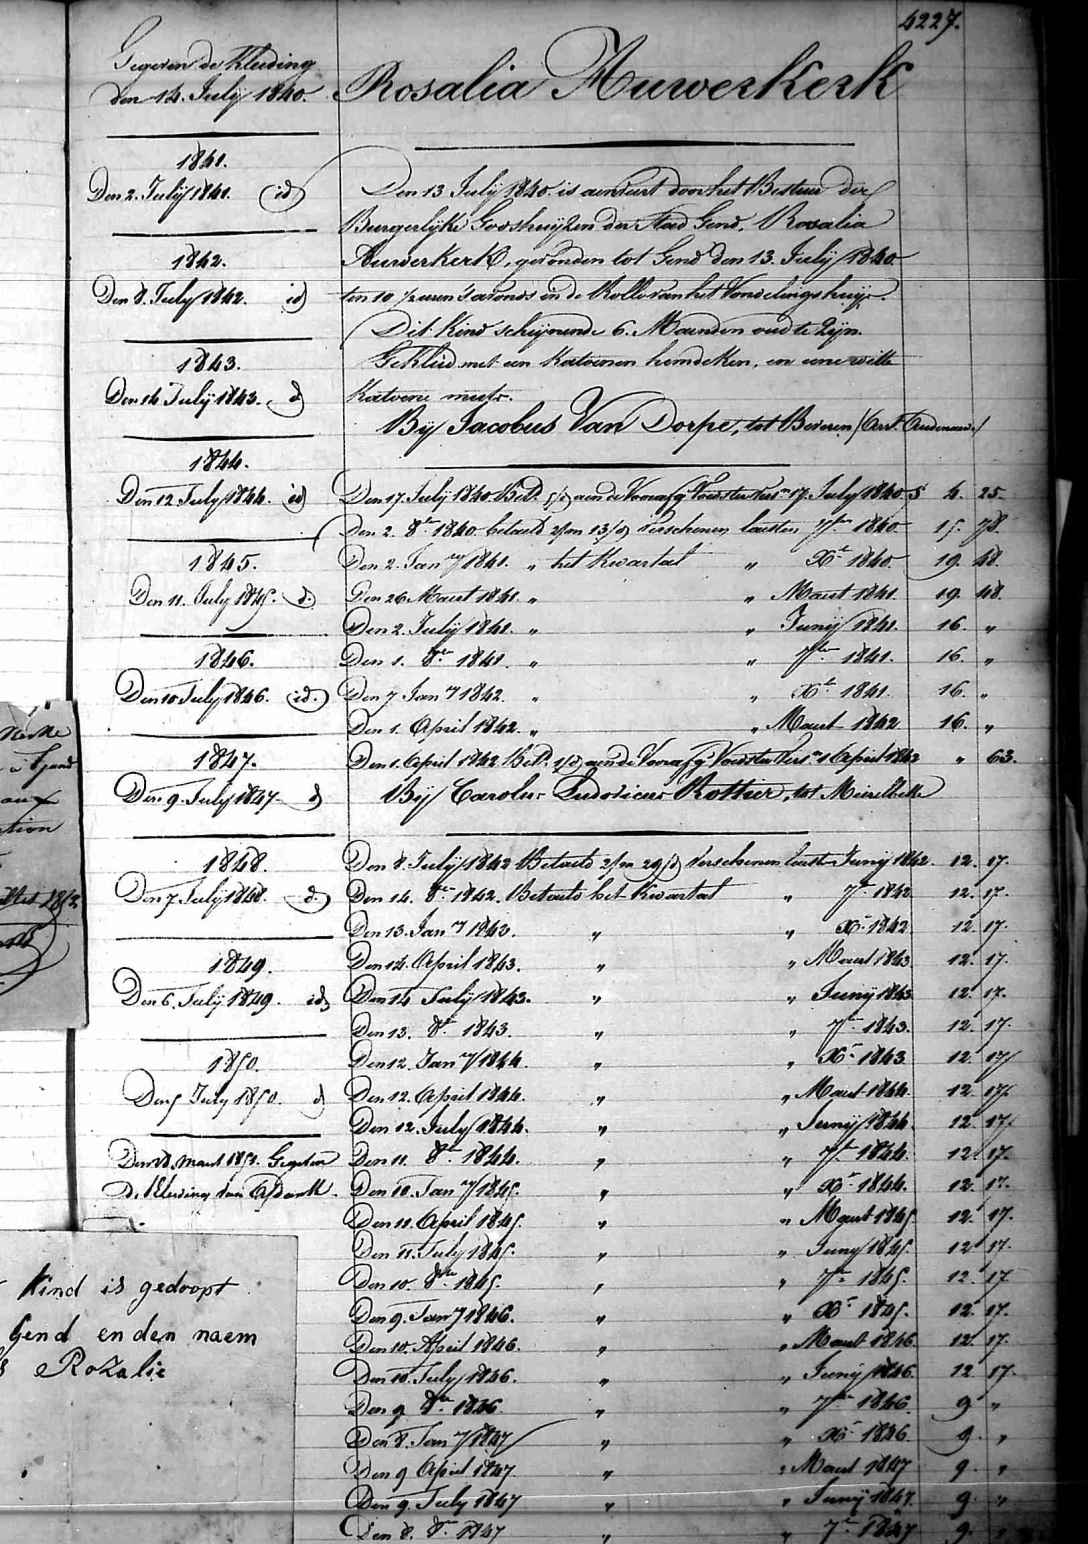 4227.
Rosalia Auwerkerk
Gegeven de Kleeding
den 14. July 1840.
1841.
Den 2. July 1841. id
1842.
Den 8. July 1842. id
1843.
Den 14 July 1843. d
1844.
Den 12 July 1844. id
1845.
Den 11. July 1845. d.
1846.
Den 10 July 1846. id.
1847.
Den 9. July 1847 d
1848.
Den 7. July 1848. d.
1849.
Den 6. July 1849. id
1850.
Den 5 July 1850. d
Den 28. maart 1851. Gegeven
de Kleeding van
Den 13 July 1840 is aenveert door het Bestuur der
Burgerlyke Godshuyzen der Stad Gend, Rosalia
Auwerkerk, gevonden tot Gend den 13. July 1840
ten 10 ½ uren s'avonds in de Rolle van het Vondelingshuys.
Dit Kind schynende 6. Maenden oud te Zyn.
Gekleed met een Katoenen hemdeken, en eene witte
Katoene muts.
By Jacobus Van Dorpe, tot Beveren (Arr.t Audenaerde)
Den 17. July 1840. Bet. aen de Voorafg. Voedster Vers. 17. July 1840 4. 25.
Den 2. 8.r 1840. betaeld verschenen laesten 7.bre 1840. 15. 78.
Den 2. Jan.ry 1841. „ het Kwartael „ X.r 1840. 19. 48.
Den 26 Maert 1841. „ „ Maert 1841. 19. 48.
Den 2. July 1841. „ „ Juny 1841. 16. „
Den 1. 8.re 1841. „ „ 7.bre 1841. 16. „
Den 7 Jan.y 1842. „ „ X.r 1841. 16. „
Den 1. April 1842. „ „ Maert 1842 16. „
Den 1. April 1842 Bet. aen de Voorafg. Voedster Vers. 1 April 1842 „ 63.
By Carolus Ludovicus Rothier, tot Meirelbeke
Den 8. July 1842 Betaeld Verschenen laest. Juny 1842. 12. 17.
Den 14. 8.re 1842. Betaeld het Kwartael „ 7.r 1842 12. 17.
Den 13. Jan.y 1843. „ „ X.r 1842 12. 17.
Den 14. April 1843. „ „ Maert 1843 12. 17.
Den 14 July 1843. „ „ Juny 1843 12. 17.
Den 13. 8.r 1843. „ „ 7.r 1843. 12. 17.
Den 12. Jan.y 1844. „ „ X.r 1843 12. 17
Den 12. April 1844. „ „ Maert 1844. 12. 17.
Den 12. July 1844. „ „ Juny 1844. 12. 17.
Den 11. 8.r 1844. „ „ 7.r 1844. 12. 17.
Den 10. Jan.y 1845. „ „ X.r 1844. 12. 17.
Den 11. April 1845. „ „ Maert 1845. 12. 17.
Den 11. July 1845. „ „ Juny 1845. 12. 17.
Den 10. 8.re 1845. „ „ 7.r 1845. 12. 17
Den 9. Jan.y 1846. „ „ X.r 1845. 12. 17.
Den 10. April 1846. „ „ Maert 1846. 12. 17.
Den 10. July 1846. „ „ Juny 1846. 12 17.
Den 9 8.re 1846. „ „ 7.re 1846. 9 „
Den 8. Jan.y 1847 „ „ X.r 1846. 9. „
Den 9 April 1847. „ „ Maert 1847 9. „
Den 9. July 1847 „ „ Juny 1847. 9. „
Den 8. 8.re 1847 „ „ 7.r 1847 9. „
Gand
Kind is gedoopt
Gend en den naem
Rozalie